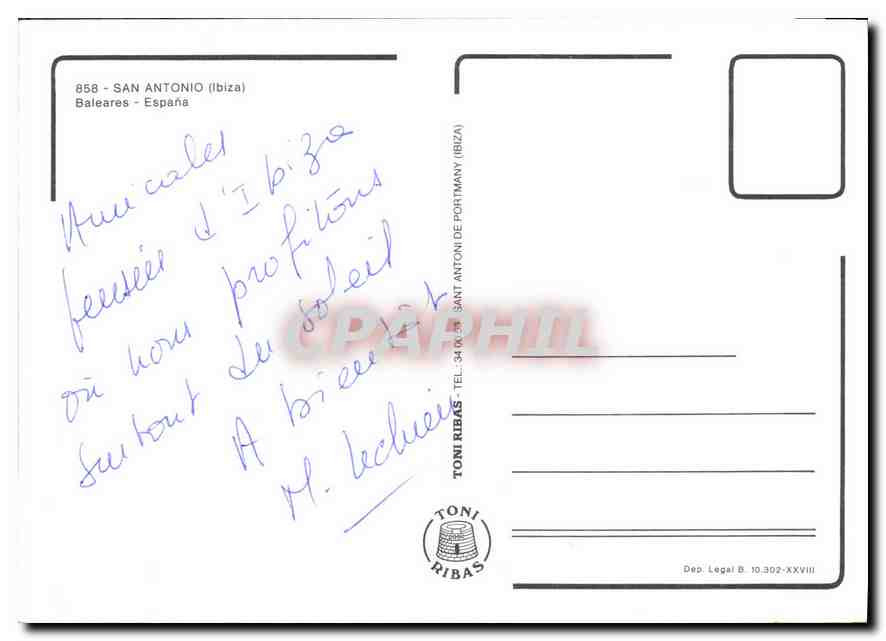 858 - SAN ANTONIO (Ibiza)
Baleares - España
Amicales
pensées d'Ibiza
où nous profitons
surtout du soleil
A bientôt
M.
TONI RIBAS - TEL.: SANT ANTONI DE PORTMANY (IBIZA)
CPAPHIL
TONI
RIBAS
Dep. Legal B. 10.302-XXVIII